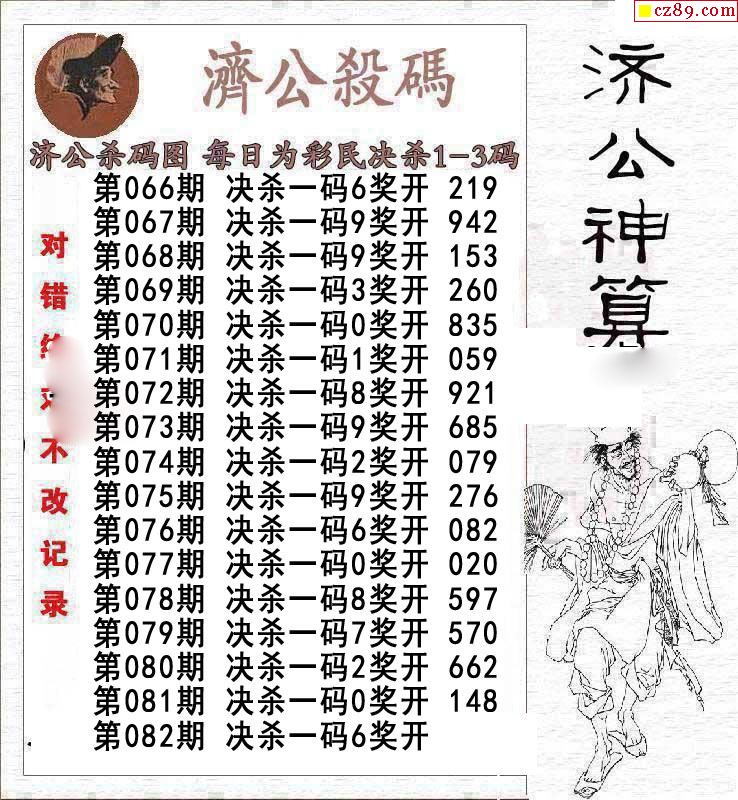 cz89.com
濟公殺碼
济公杀码图 每日为彩民决杀1-3码
第066期 决杀一码6奖开 219
第067期 决杀一码9奖开 942
第068期 决杀一码9奖开 153
第069期 决杀一码3奖开 260
第070期 决杀一码0奖开 835
第071期 决杀一码1奖开 059
第072期 决杀一码8奖开 921
第073期 决杀一码9奖开 685
第074期 决杀一码2奖开 079
第075期 决杀一码9奖开 276
第076期 决杀一码6奖开 082
第077期 决杀一码0奖开 020
第078期 决杀一码8奖开 597
第079期 决杀一码7奖开 570
第080期 决杀一码2奖开 662
第081期 决杀一码0奖开 148
第082期 决杀一码6奖开
对错不改记录
济公神算